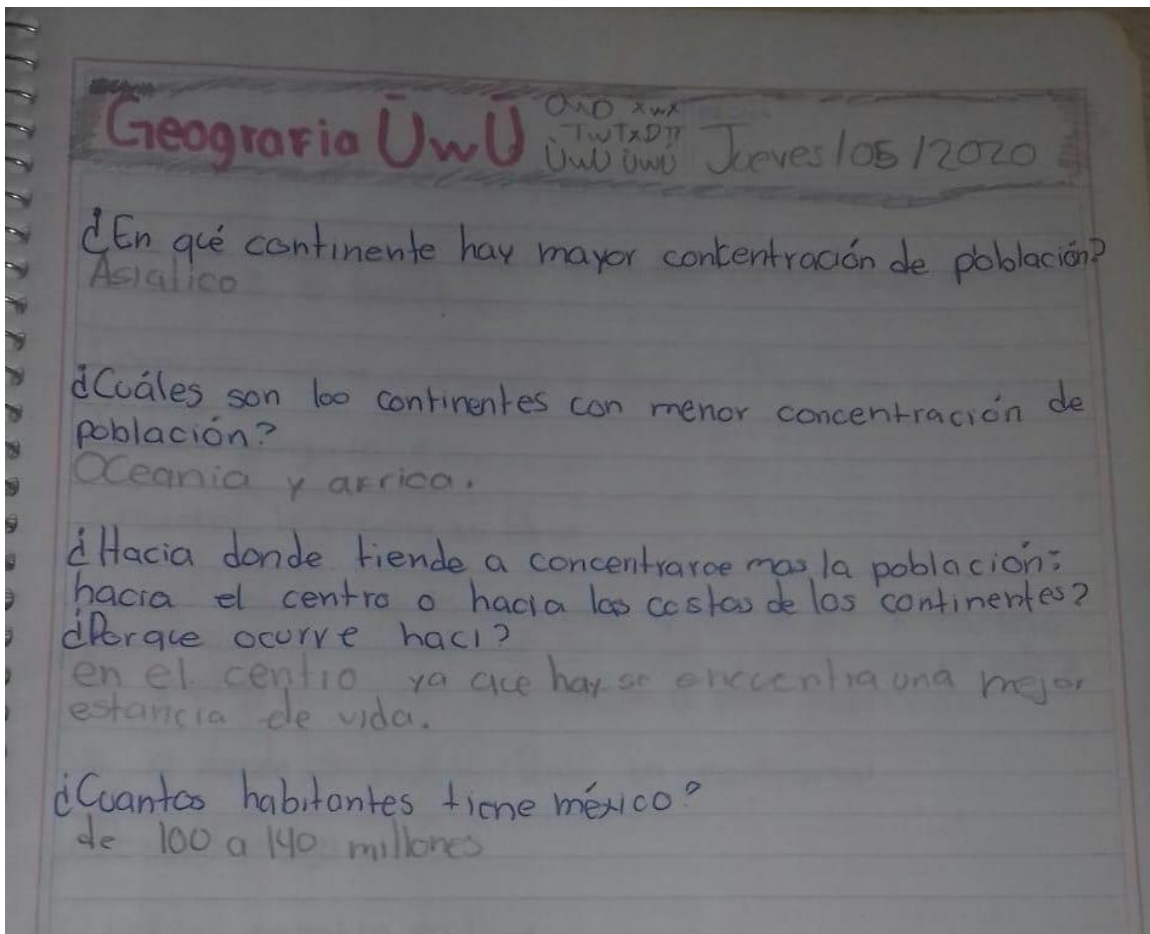 Geografia ŪwŪ OwO xwx
TwT xD
ÜwÜ üwü Jueves/05/2020
¿En qué continente hay mayor concentración de poblacíon?
Asiatico
¿Cuáles son los continentes con menor concentración de
población?
Oceania y africa.
¿Hacia donde tiende a concentrarse mas la población:
hacia el centro o hacia las costas de los continentes?
¿Porque ocurre haci?
en el centro ya que hay se encuentra una mejor
estancia de vida.
¿Cuantos habitantes tiene méxico?
de 100 a 140 millones